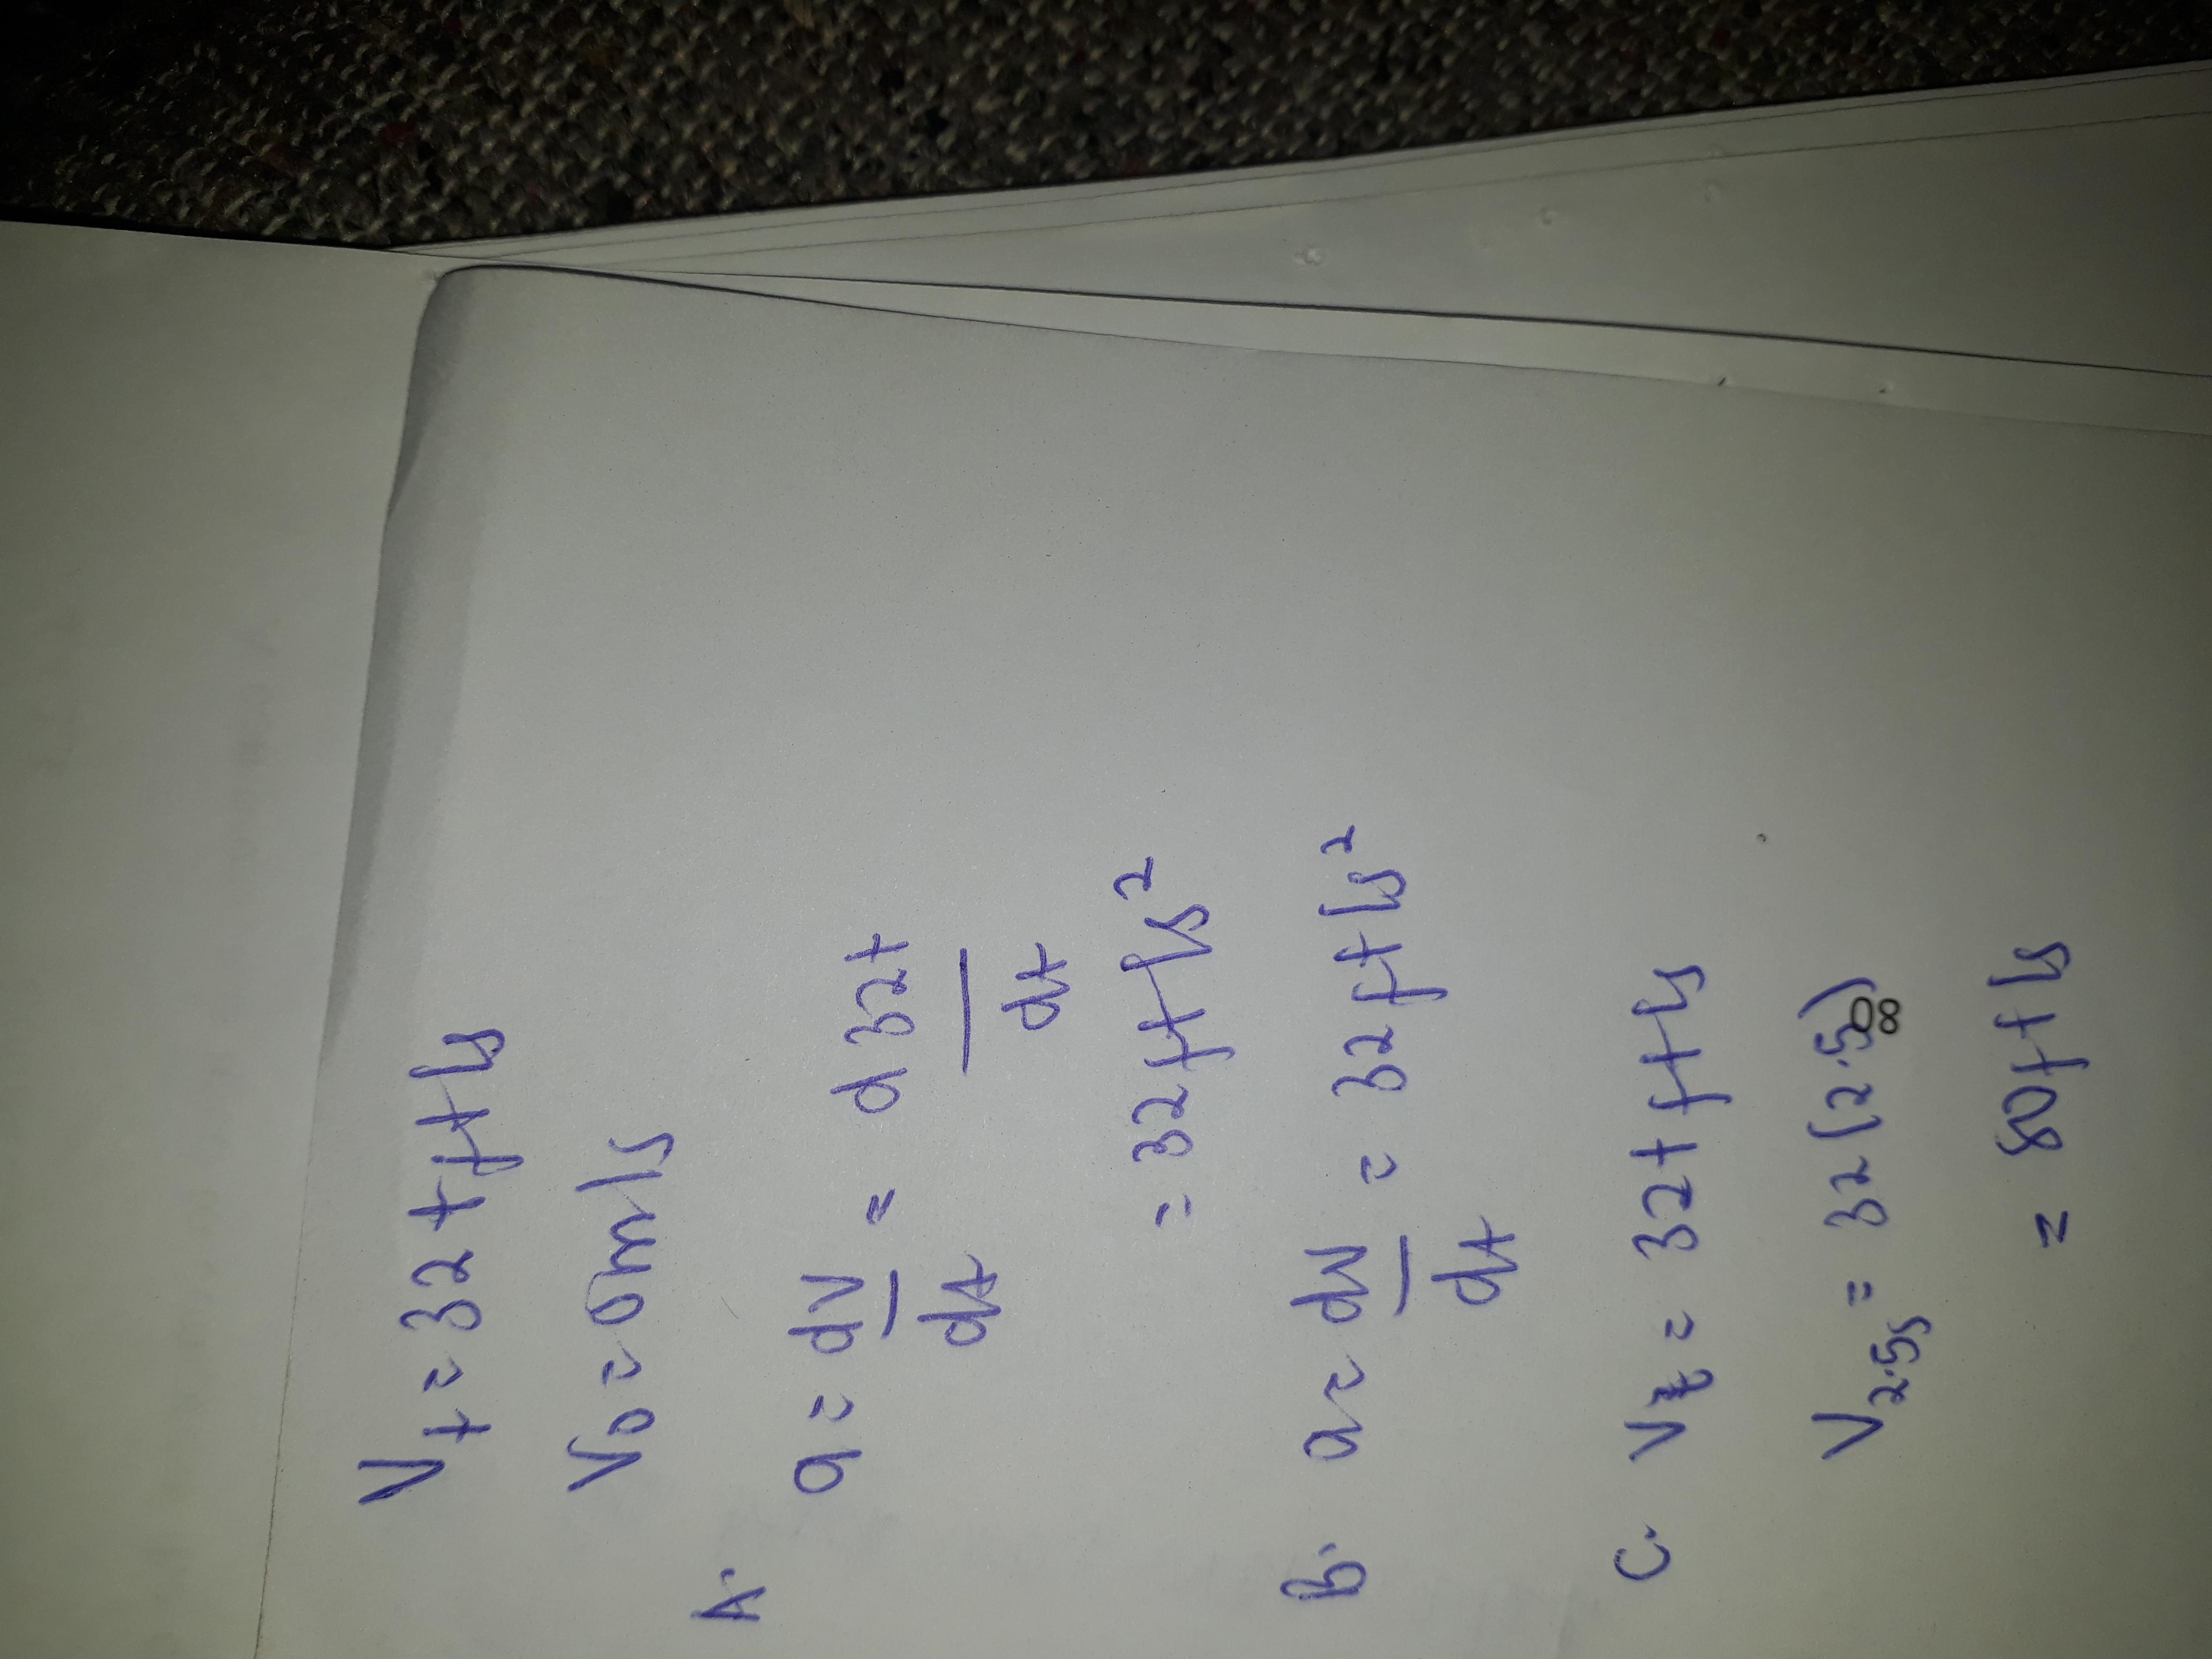 Vt = 32t ft/s
V0 = 0m/s
A.
a = dv/dt = d32t/dt
= 32ft/s²
B. a = dv/dt = 32ft/s²
C. Vt = 32t ft/s
V2.5s = 32(2.5)
= 80ft/s